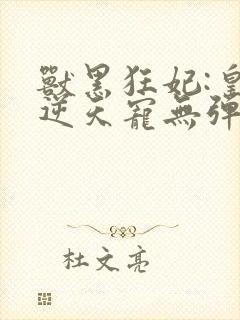 獸黑狂妃:皇
逆天寵無彈
杜文亮